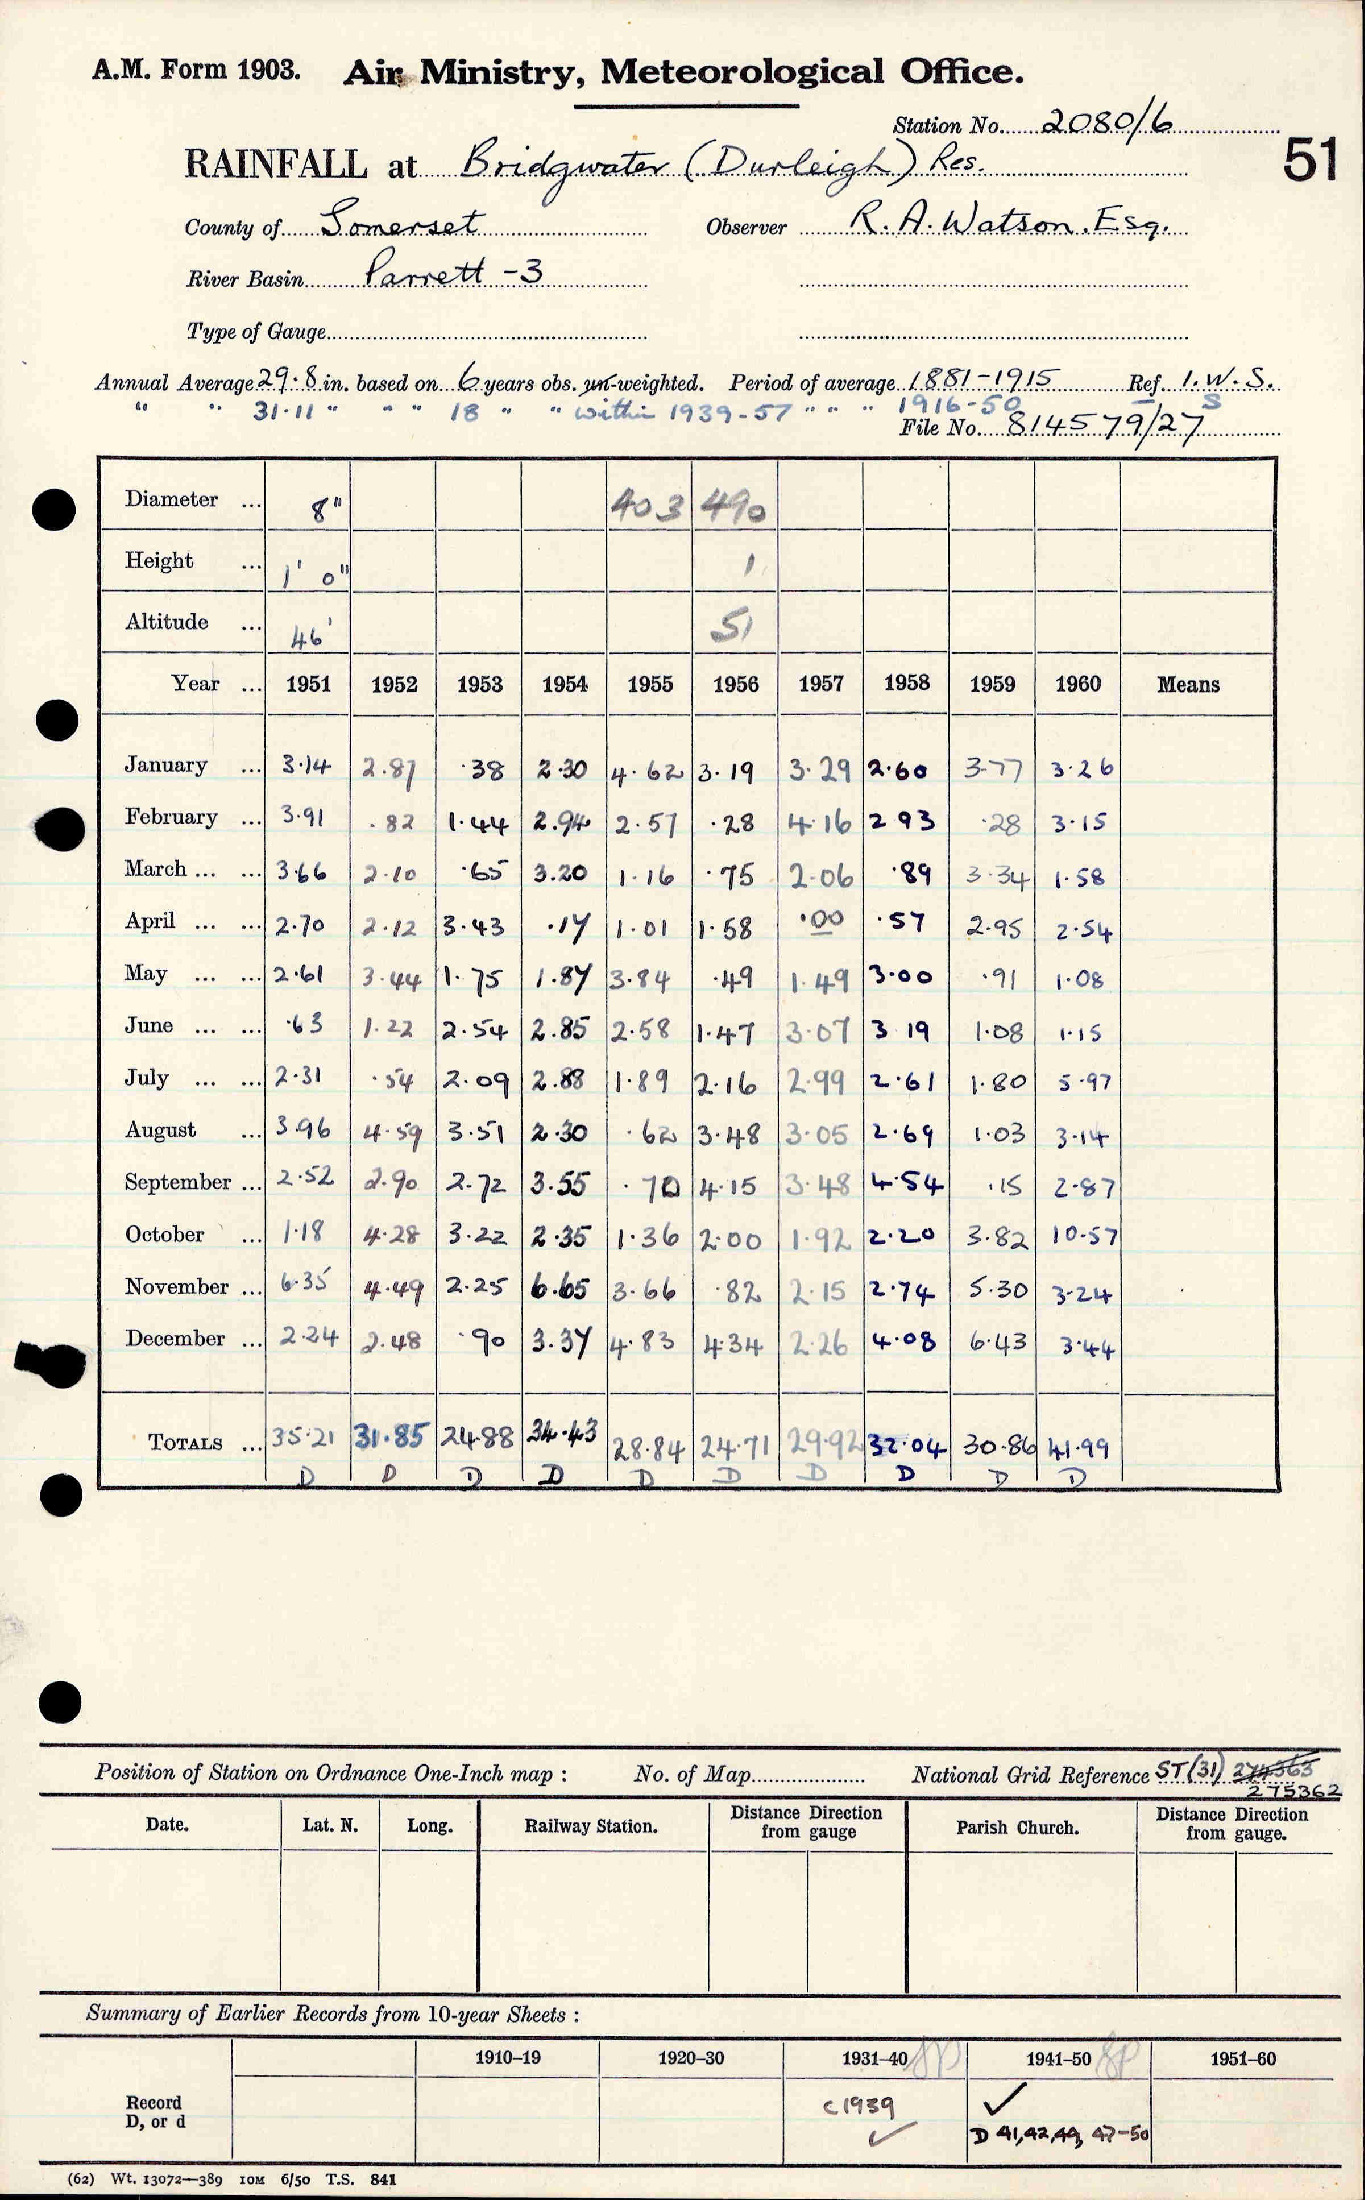 A.M. Form 1903. Air Ministry, Meteorological Office.
Station No. 2080/6
51
RAINFALL at Bridgwater (Durleigh) Res.
County of Somerset Observer R. A. Watson. Esq.
River Basin Parrett -3
Type of Gauge
Annual Average 29.8 in. based on 6 years obs. un-weighted. Period of average 1881-1915 Ref. I.W.S.
" " 31.11 " " " 18 " " within 1939-57 " " " 1916-50 S
File No. 814579/27
Diameter ... 8" 403 490
Height ... 1' 0" 1
Altitude ... 46' 51
Year ... 1951 1952 1953 1954 1955 1956 1957 1958 1959 1960 Means
January ... 3.14 2.87 .38 2.30 4.62 3.19 3.29 2.60 3.77 3.26
February ... 3.91 .82 1.44 2.94 2.57 .28 4.16 2 93 .28 3.15
March ... ... 3.66 2.10 .65 3.20 1.16 .75 2.06 .89 3.34 1.58
April ... ... 2.70 2.12 3.43 .17 1.01 1.58 .00 .57 2.95 2.54
May ... ... 2.61 3.44 1.75 1.87 3.84 .49 1.49 3.00 .91 1.08
June ... ... .63 1.22 2.54 2.85 2.58 1.47 3.07 3 19 1.08 1.15
July ... ... 2.31 .54 2.09 2.88 1.89 2.16 2.99 2.61 1.80 5.97
August ... 3.96 4.59 3.51 2.30 .62 3.48 3.05 2.69 1.03 3.14
September ... 2.52 2.90 2.72 3.55 .70 4.15 3.48 4.54 .15 2.87
October ... 1.18 4.28 3.22 2.35 1.36 2.00 1.92 2.20 3.82 10.57
November ... 6.35 4.49 2.25 6.65 3.66 .82 2.15 2.74 5.30 3.24
December ... 2.24 2.48 .90 3.37 4.83 4.34 2.26 4.08 6.43 3.44
TOTALS ... 35.21 31.85 24.88 34.43 28.84 24.71 29.92 32.04 30.86 41.99
D D D D D D D D D D
Position of Station on Ordnance One-Inch map : No. of Map National Grid Reference ST(31) 274363
275362
Date. Lat. N. Long. Railway Station. Distance Direction from gauge Parish Church. Distance Direction from gauge.
Summary of Earlier Records from 10-year Sheets :
1910-19 1920-30 1931-40 1941-50 1951-60
Record D, or d c1939 ✓ ✓
D 41,42,44, 47-50
(62) Wt. 13072—389 10M 6/50 T.S. 841